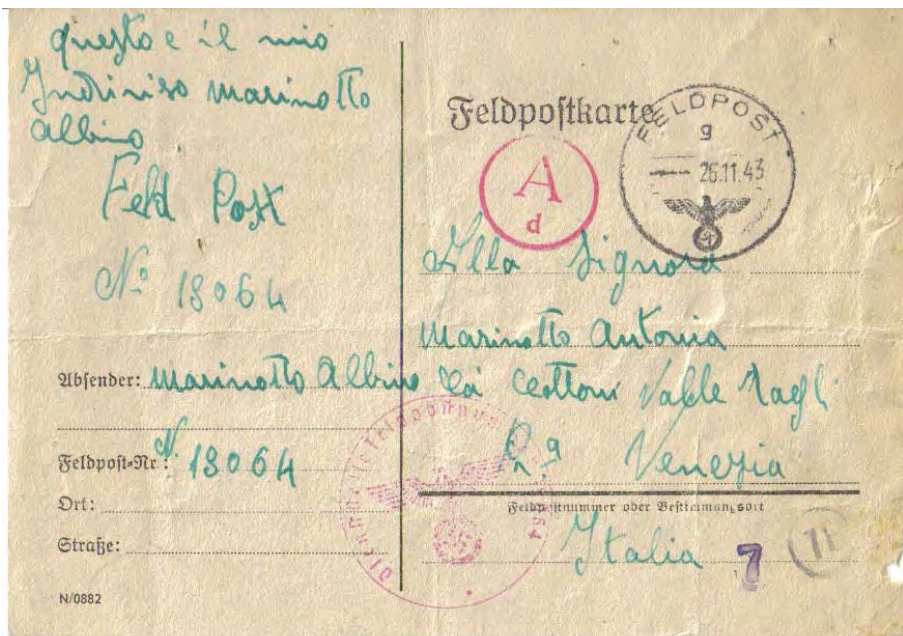 questo e il mio
Indiriso marinotto
albino
Feld Post
N° 18064
Absender: marinotto Albino
Feldpost-Nr.: N. 18064
Ort:
Straße:
N/0882
Feldpostkarte
FELDPOST
g
26.11.43
A
d
Alla Signora
marinotto Antonia
Valle
Venezia
Feldpostnummer oder Bestimmungsort
Italia
7